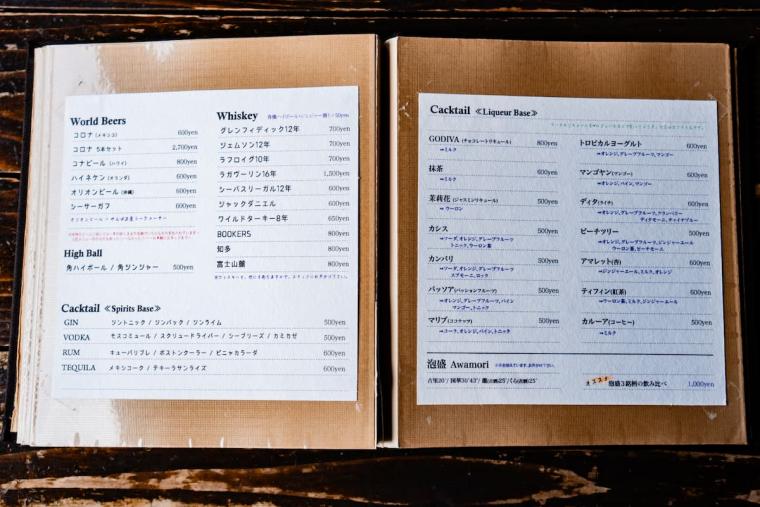 World Beers
コロナ (メキシコ) 600yen
コロナ 5本セット 2,700yen
コナビール (ハワイ) 800yen
ハイネケン (オランダ) 600yen
オリオンビール (沖縄) 600yen
シーサーガフ 600yen
High Ball
角ハイボール / 角ジンジャー 500yen
Whiskey
グレンフィディック12年 700yen
ジェムソン12年 700yen
ラフロイグ10年 700yen
ラガヴーリン16年 1,500yen
シーバスリーガル12年 600yen
ジャックダニエル 600yen
ワイルドターキー8年 650yen
BOOKERS 800yen
知多 800yen
富士山麓 800yen
Cacktail ≪Spirits Base≫
GIN ジントニック / ジンバック / ジンライム 500yen
VODKA モスコミュール / スクリュードライバー / シーブリーズ / カミカゼ 500yen
RUM キューバリブレ / ボストンクーラー / ピニャカラーダ 600yen
TEQUILA メキシコーク / テキーラサンライズ 600yen
Cacktail ≪Liqueur Base≫
GODIVA (チョコレートリキュール) 800yen
⇒ミルク
抹茶 600yen
⇒ミルク
茉莉花 (ジャスミンリキュール) 500yen
⇒ ウーロン
カシス 500yen
⇒ソーダ、オレンジ、グレープフルーツ
トニック、ウーロン茶
カンパリ 500yen
⇒ソーダ、オレンジ、グレープフルーツ
スプモーニ、ロック
パッソア (パッションフルーツ) 500yen
⇒オレンジ、グレープフルーツ、パイン
マンゴー、トニック
マリブ (ココナッツ) 500yen
⇒コーラ、オレンジ、パイン、トニック
トロピカルヨーグルト 600yen
⇒オレンジ、グレープフルーツ、マンゴー
マンゴヤン (マンゴー) 600yen
⇒オレンジ、パイン、マンゴー
ディタ (ライチ) 600yen
⇒オレンジ、グレープフルーツ、クランベリー
ディタモーニ、チャイナブルー
ピーチツリー 500yen
⇒オレンジ、グレープフルーツ、ジンジャーエール
ウーロン茶、ピーチモーニ
アマレット(杏) 600yen
⇒ジンジャーエール、ミルク、オレンジ
ティフィン(紅茶) 600yen
⇒ウーロン茶、ミルク、ジンジャーエール
カルーア (コーヒー) 500yen
⇒ミルク
泡盛 Awamori
オススメ 泡盛3銘柄の飲み比べ 1,000yen